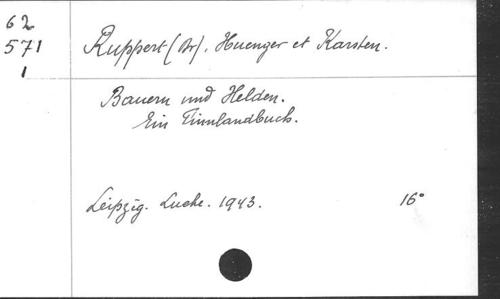 62
571
1
Ruppert (Br), Huenger et Karsten.
Bauern und Helden.
Ein Finnlandbuch.
Leipzig. Luche. 1943. 16°